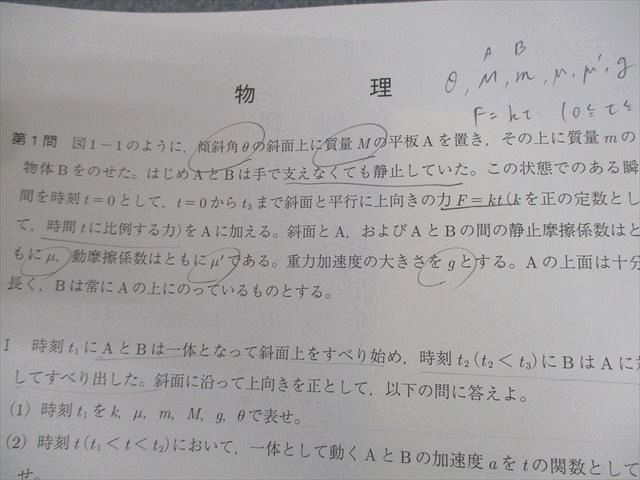 A B
物 理
θ, M, m, μ, μ', g
F = kt (0≦t≦
第1問 図1-1のように，傾斜角θの斜面上に質量Mの平板Aを置き，その上に質量mの
物体Bをのせた。はじめAとBは手で支えなくても静止していた。この状態でのある瞬
間を時刻t=0として，t=0からt₃まで斜面と平行に上向きの力F=kt(kを正の定数とし
て，時間tに比例する力)をAに加える。斜面とA，およびAとBの間の静止摩擦係数はと
もにμ，動摩擦係数はともにμ'である。重力加速度の大きさをgとする。Aの上面は十分
長く，Bは常にAの上にのっているものとする。
I 時刻t₁にAとBは一体となって斜面上をすべり始め，時刻t₂(t₂<t₃)にBはAに対
してすべり出した。斜面に沿って上向きを正として，以下の問に答えよ。
(1) 時刻t₁をk, μ, m, M, g, θで表せ。
(2) 時刻t(t₁<t<t₂)において，一体として動くAとBの加速度aをtの関数として
せ。